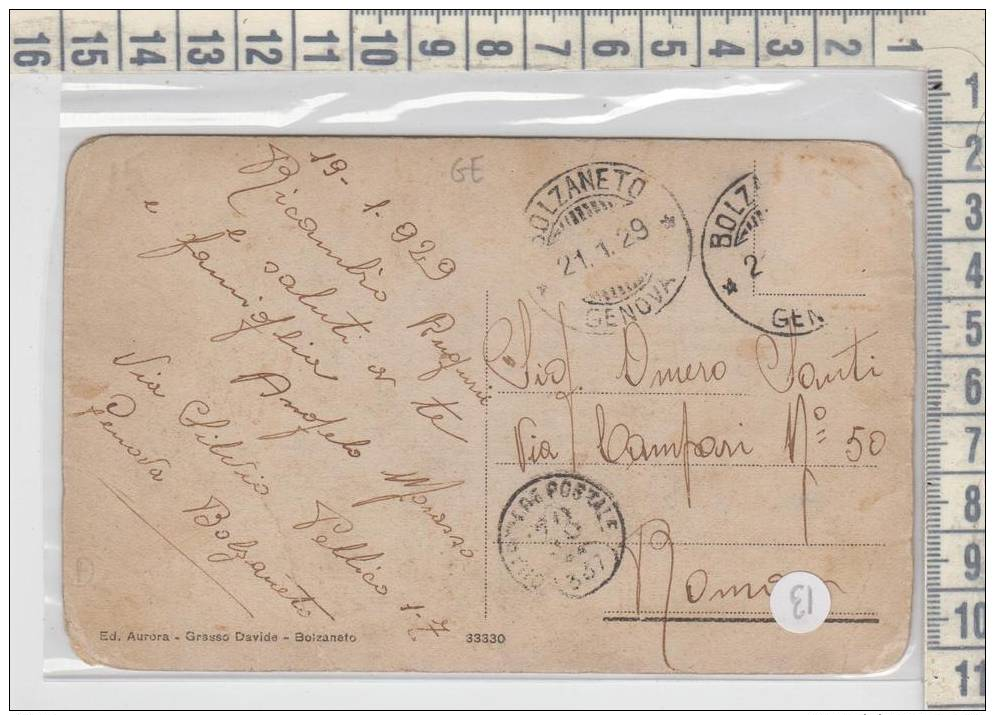 16 15 14 13 12 11 10 9 8 7 6 5 4 3 2 1
1
2
3
4
5
6
7
8
9
10
11
GE
19-1-929
Ricambio Auguri
e saluti a te
e famiglia
Angelo Morasso
Via Silvio Pellico 1-7
Genova Bolzaneto
BOLZANETO
21.1.29
GENOVA
BOLZA
2
GEN
Sig. Omero Santi
Via Campari Nº 50
POSTALE
357
Roma
13
Ed. Aurora - Grasso Davide - Bolzaneto 33330